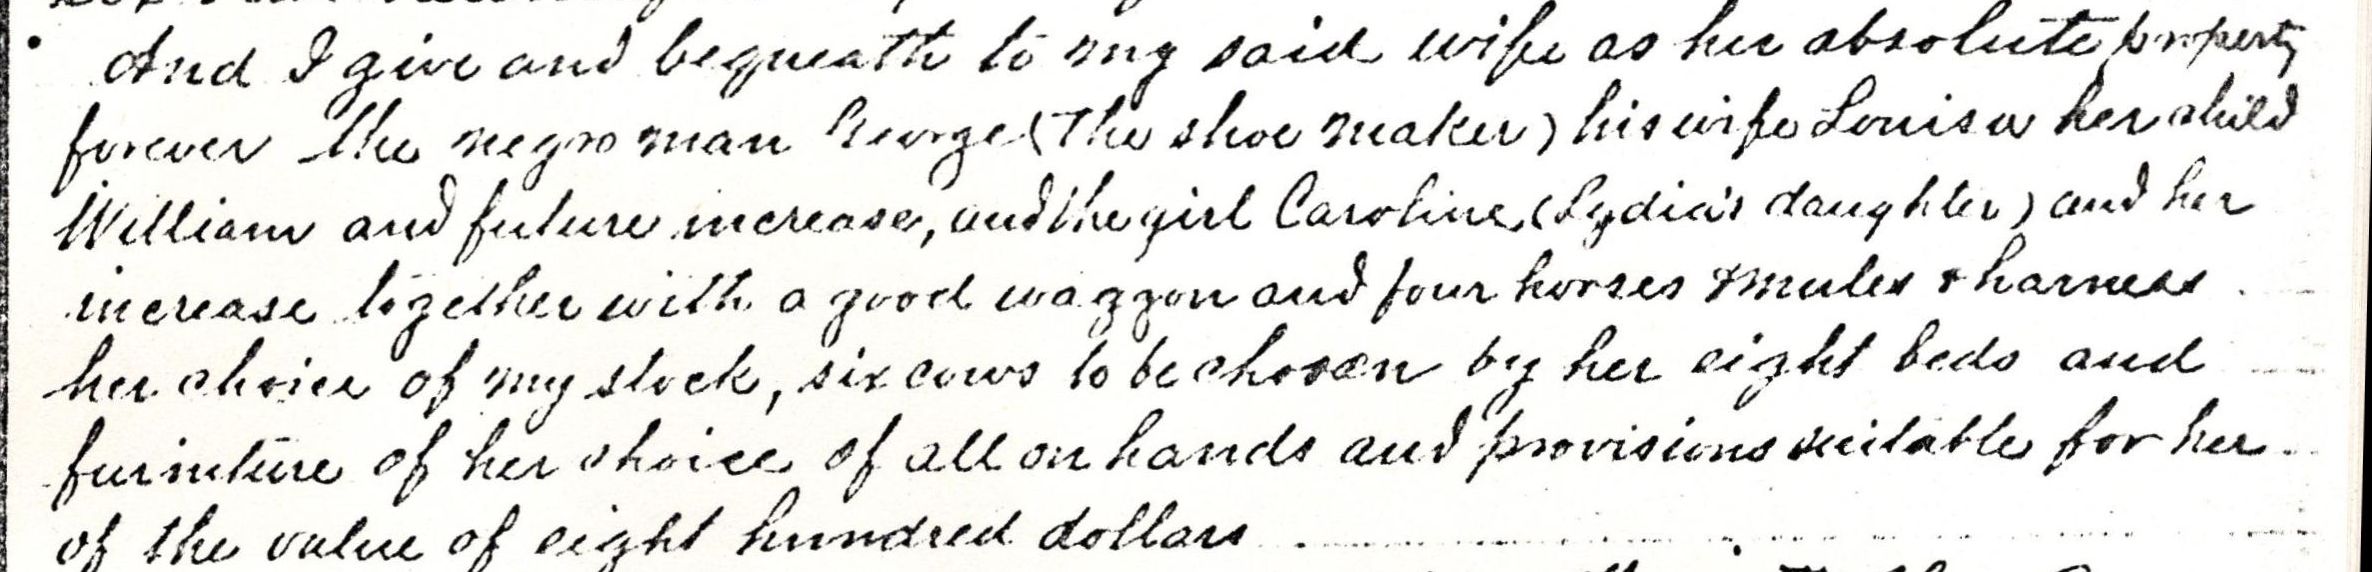 And I give and bequeath to my said wife as her absolute property
forever the negro man George (The shoe maker) his wife Louisa her child
William and future increase, and the girl Caroline (Lydia's daughter) and her
increase together with a good waggon and four horses & mules & harness
her choice of my stock, six cows to be chosen by her eight beds and
furniture of her choice of all on hands and provisions suitable for her
of the value of eight hundred dollars